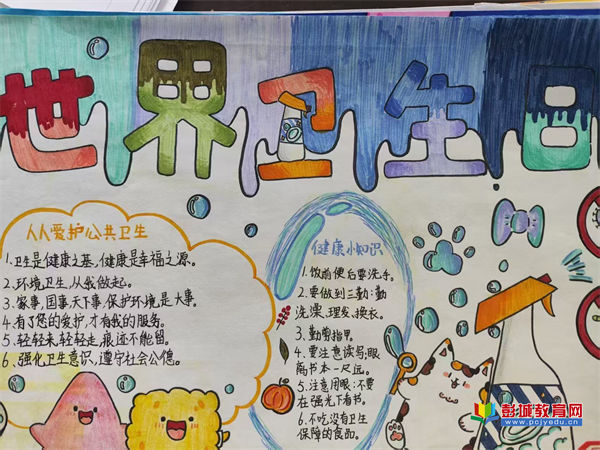 世界卫生日
人人爱护公共卫生
1、卫生是健康之基,健康是幸福之源。
2、环境卫生,从我做起。
3、家事,国事天下事 保护环境是大事。
4、有了您的爱护,才有我的服务。
5、轻轻来,轻轻走,痕迹不能留。
6、强化卫生意识,遵守社会公德。
健康小知识
1、饭前便后要洗手。
2、要做到三勤:勤
洗澡、理发、换衣。
3、勤剪指甲。
4、要注意读写;眼
离书本一尺远。
5、注意用眼:不要
在强光下看书。
6、不吃没有卫生
保障的食品。
彭城教育网
www.pcjyedu.cn